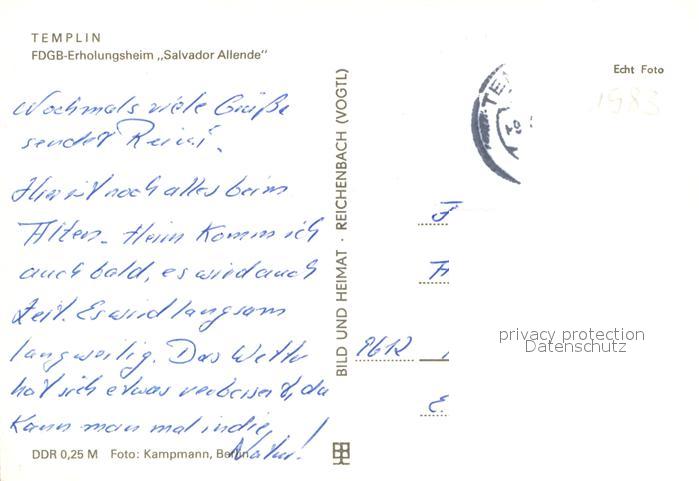 TEMPLIN
FDGB-Erholungsheim „Salvador Allende"
Echt Foto
1983
Nochmals viele Grüße
sendet Reini.
Hier ist noch alles beim
Alten. Heim komm ich
auch bald, es wird auch
Zeit. Es wird langsam
langweilig. Das Wetter
hat sich etwas verbessert, da
kann man mal in die
Natur!
BILD UND HEIMAT · REICHENBACH (VOGTL)
TE
F
A
9612
E.
privacy protection
Datenschutz
DDR 0,25 M Foto: Kampmann, Berlin